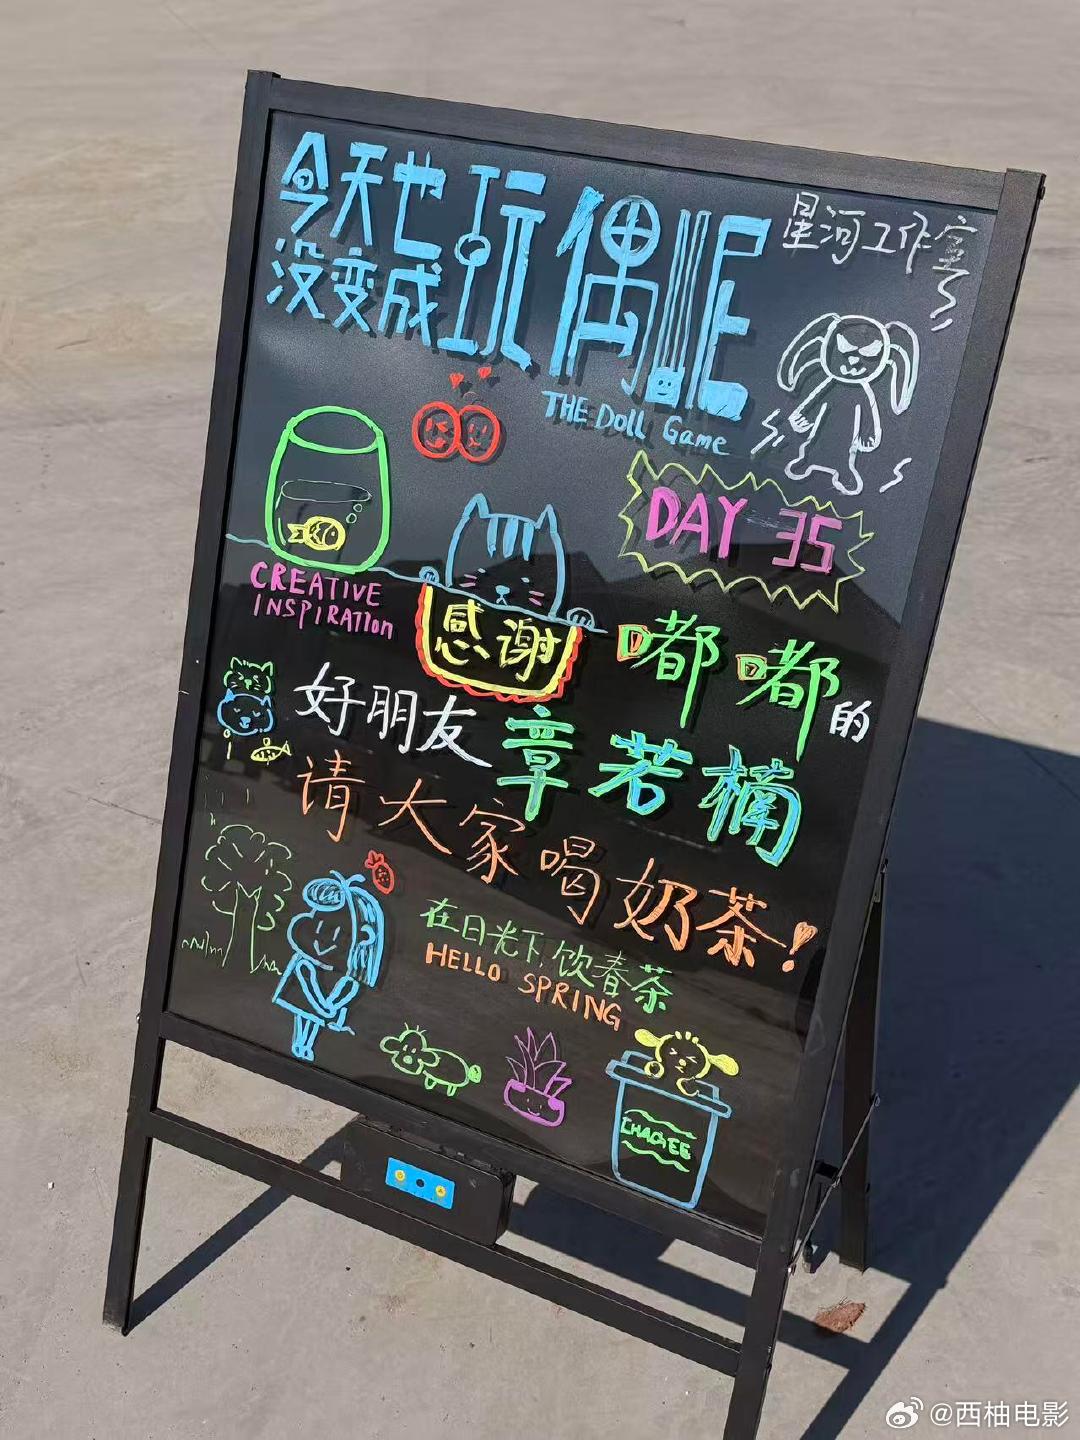 今天也
没变成
玩偶呢
星河工作室
THE Doll Game
DAY 35
CREATIVE
INSPIRATIon
感谢
嘟嘟的
好朋友章若楠
请大家喝奶茶!
在日光下饮春茶
HELLO SPRING
CHAGEE
@西柚电影